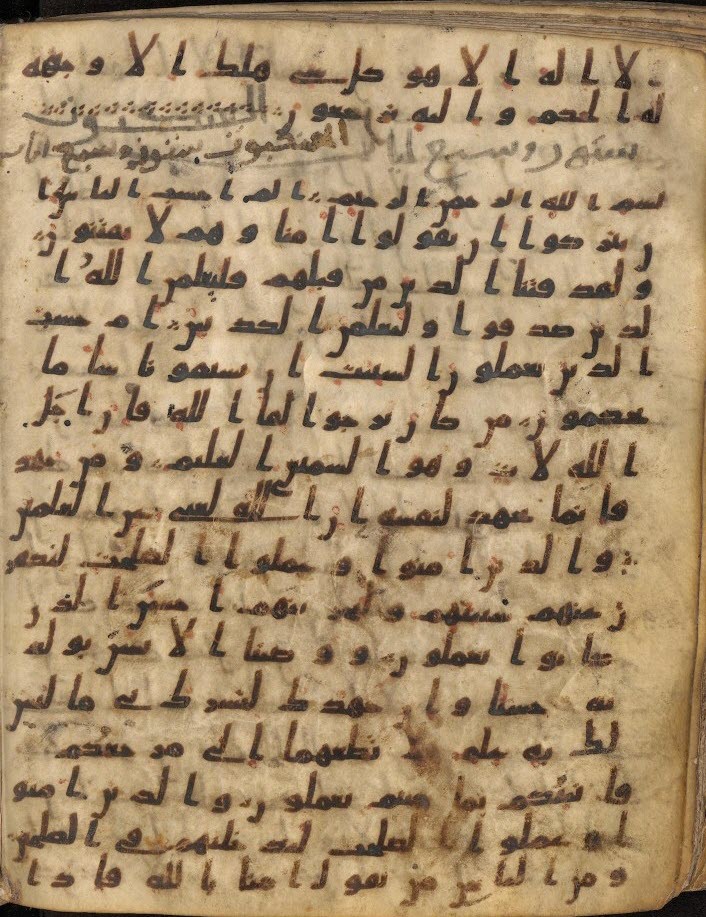 لا اله الا هو كل شي هلك الا وجهه
له الحكم و اليه ترجعون العنكبوت
ستون وسبع ايا العنكبوت ستون وسبع ايات
بسم الله الرحمن الرحيم الم احسب الناس ا
ن يتركوا ان يقولوا امنا وهم لا يفتنون
ولقد فتنا الذين من قبلهم فليعلمن الله ا
لذين صدقوا وليعلمن الكذبين ام حسب
الذين يعملون السيت ان يسبقونا سا ما
يحكمون من كان يرجوا لقا الله فان اجل
الله لات وهو السميع العليم ومن جهد
فانما يجهد لنفسه ان الله لغني عن العلمين
والذين امنوا وعملوا الصلحت لنكفر
ن عنهم سيتهم ولنجزينهم احسن الذي
كانوا يعملون ووصينا الانسن بولد
يه حسنا وان جهدك لتشرك بي ما ليس
لك به علم فلا تطعهما الي مرجعكم
فانبئكم بما كنتم تعملون والذين امنو
ا وعملوا الصلحت لندخلنهم في الصلحين
ومن الناس من يقول امنا بالله فاذا